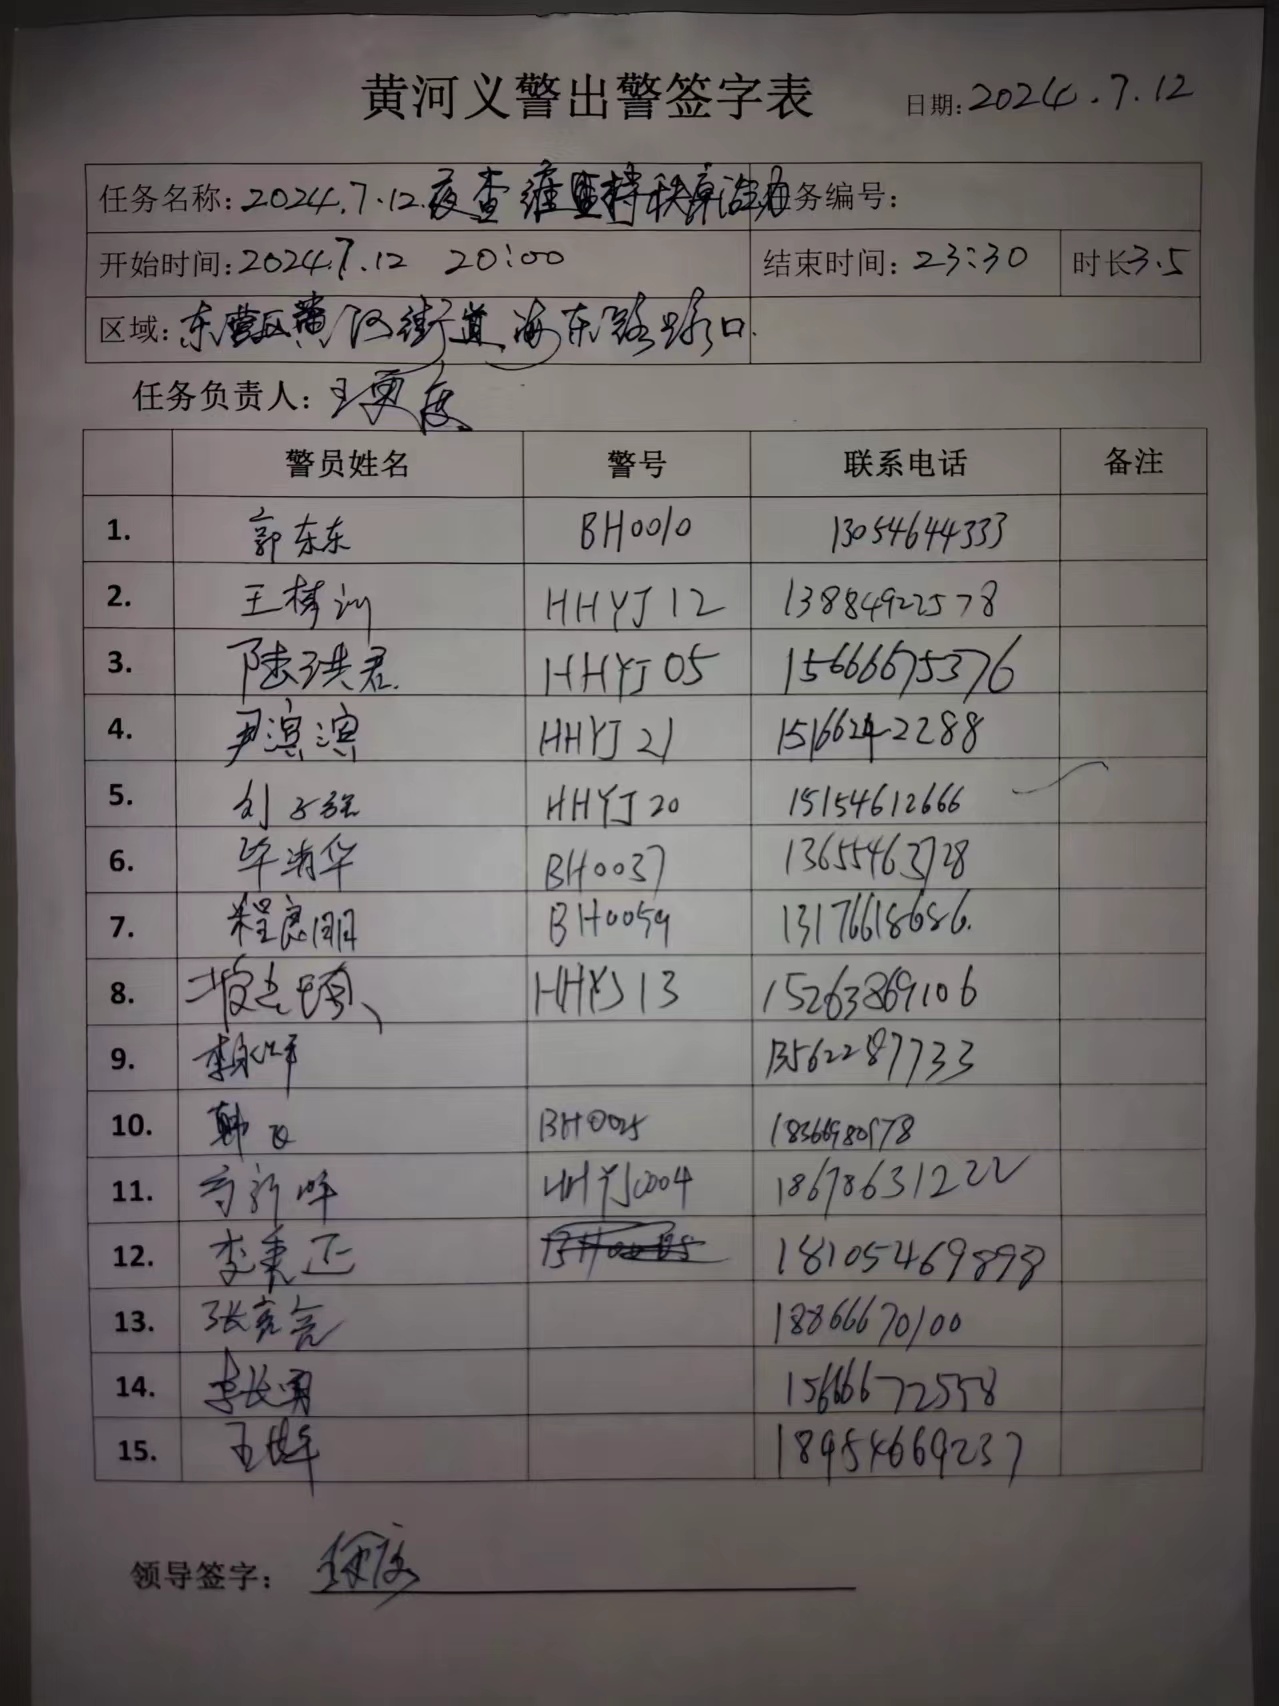 黄河义警出警签字表 日期:2024.7.12
任务名称:2024.7.12.夜查维持秩序 务编号:
开始时间:2024.7.12 20:00 结束时间:23:30 时长3.5
区域:东营区黄河街道海东路路口.
任务负责人:王
警员姓名 警号 联系电话 备注
1. 郭东东 BH0010 13054644333
2. 王 HHYJ12 13884922578
3. 陆洪君 HHYJ05 15666675376
4. 尹滨滨 HHYJ21 15166242288
5. 刘 HHYJ20 15154612666
6. 毕清华 BH0037 13655463728
7. 程良朋 BH0059 13176618686.
8. HHYJ13 15263869106
9. 李永华 13562287733
10. 韩飞 BH0025 18366980978
11. 新峰 HHYJ0004 18678631222
12. 李秉正 18105469898
13. 张亮亮 18866670100
14. 李长勇 15666672558
15. 王 18954669237
领导签字: